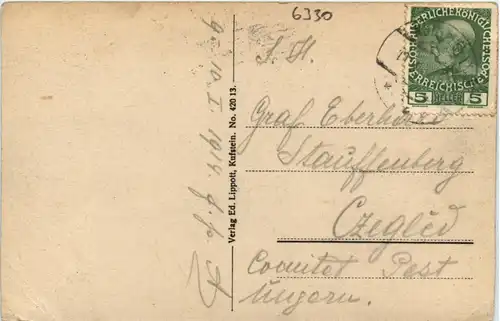 6330
KAISERLICHE KÖNIGLICHE
ÖSTERREICHISCHE POST
5 HELLER 5
S. H.
Graf Eberhard
Stauffenberg
Czegléd
Comitat Pest
Ungarn.
Verlag Ed. Lippott, Kufstein. No. 420 13.
9. 10. I 1914.